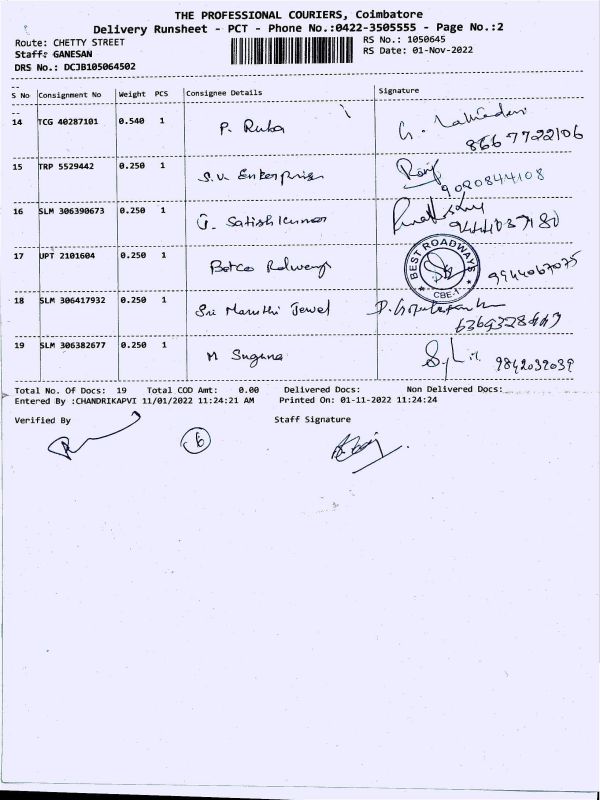 THE PROFESSIONAL COURIERS, Coimbatore
Delivery Runsheet - PCT - Phone No.:0422-3505555 - Page No.:2
Route: CHETTY STREET RS No.: 1050645
Staff: GANESAN RS Date: 01-Nov-2022
DRS No.: DCJB105064502
S No Consignment No Weight PCS Consignee Details Signature
14 TCG 40287101 0.540 1 P. Ruba G.
866 7722106
15 TRP 5529442 0.250 1 S.V. Enterprises
9020844108
16 SLM 306390673 0.250 1 J. Satish kumar
17 UPT 2101604 0.250 1 BEST ROADWAYS CBE-1 9944067075
18 SLM 306417932 0.250 1 Sri Maruthi Jewel
19 SLM 306382677 0.250 1 M Suguna 9842032039
Total No. Of Docs: 19 Total COD Amt: 0.00 Delivered Docs: Non Delivered Docs:
Entered By :CHANDRIKAPVI 11/01/2022 11:24:21 AM Printed On: 01-11-2022 11:24:24
Verified By Staff Signature
6